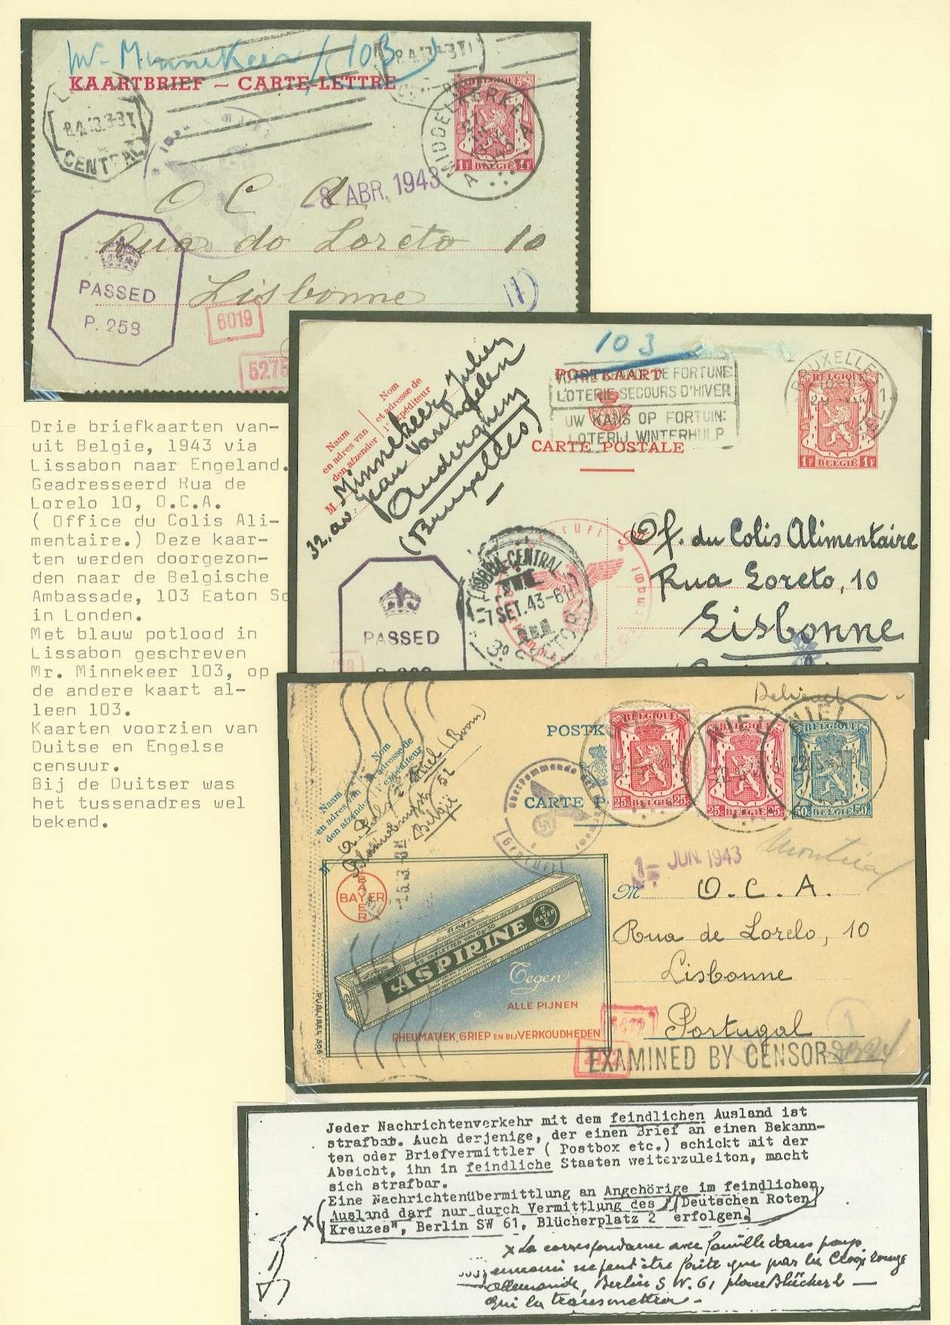 Mr Minnekeer (103)
KAARTBRIEF — CARTE-LETTRE
BELGIQUE
1F 1F
MIDDELKERKE
A A
8.4.13.-3-3T
CENTRAL
-8 ABR. 1943
O C A
Rua do Loreto 10
Lisbonne
PASSED
P. 258
6019
5275
(1)
103
Nom
et adresse de
l'expéditeur
Naam
en adres van
den afzender
M
Minnekeer Julien
32, av. Jean Van
Auderghem
(Bruxelles)
POSTKAART
CARTE POSTALE
LOTERIE SECOURS D'HIVER
UW KANS OP FORTUIN:
LOTERIJ WINTERHULP
BRUXELLES
BELGIQUE
1F BELGIË 1F
Of. du Colis Alimentaire
Rua Loreto, 10
Lisbonne
LISBOA CENTRAL
-7 SET. 43-6
PASSED
Drie briefkaarten van-
uit Belgie, 1943 via
Lissabon naar Engeland.
Geadresseerd Rua de
Lorelo 10, O.C.A.
( Office du Colis Ali-
mentaire.) Deze kaar-
ten werden doorgezon-
den naar de Belgische
Ambassade, 103 Eaton Sq
in Londen.
Met blauw potlood in
Lissabon geschreven
Mr. Minnekeer 103, op
de andere kaart al-
leen 103.
Kaarten voorzien van
Duitse en Engelse
censuur.
Bij de Duitser was
het tussenadres wel
bekend.
POSTK
CARTE P
Nom
et adresse de
l'expéditeur
Naam
en adres van
den afzender
Niel (Boom)
België
NIEL
BELGIQUE BELGIQUE BELGIQUE
25c BELGIË 25c 25c BELGIË 25c 50c BELGIË 50c
Oberkommando
Geprüft
JUN. 1943
Montréal
M O. C. A.
Rua de Lorelo, 10
Lisbonne
Portugal
BAYER
ASPIRINE
Tegen
ALLE PIJNEN
RHEUMATIEK, GRIEP EN BIJ VERKOUDHEDEN
EXAMINED BY CENSOR
Jeder Nachrichtenverkehr mit dem feindlichen Ausland ist
strafbar. Auch derjenige, der einen Brief an einen Bekann-
ten oder Briefvermittler ( Postbox etc.) schickt mit der
Absicht, ihn in feindliche Staaten weiterzuleiten, macht
sich strafbar.
Eine Nachrichtenübermittlung an Angehörige im feindlichen
Ausland darf nur durch Vermittlung des "Deutschen Roten
x Kreuzes", Berlin SW 61, Blücherplatz 2 erfolgen.
x La correspondance avec famille dans pays
ennemi ne peut être faite que par la Croix rouge
allemande, Berlin S.W. 61 place Blücher 2 —
qui la transmettra. -